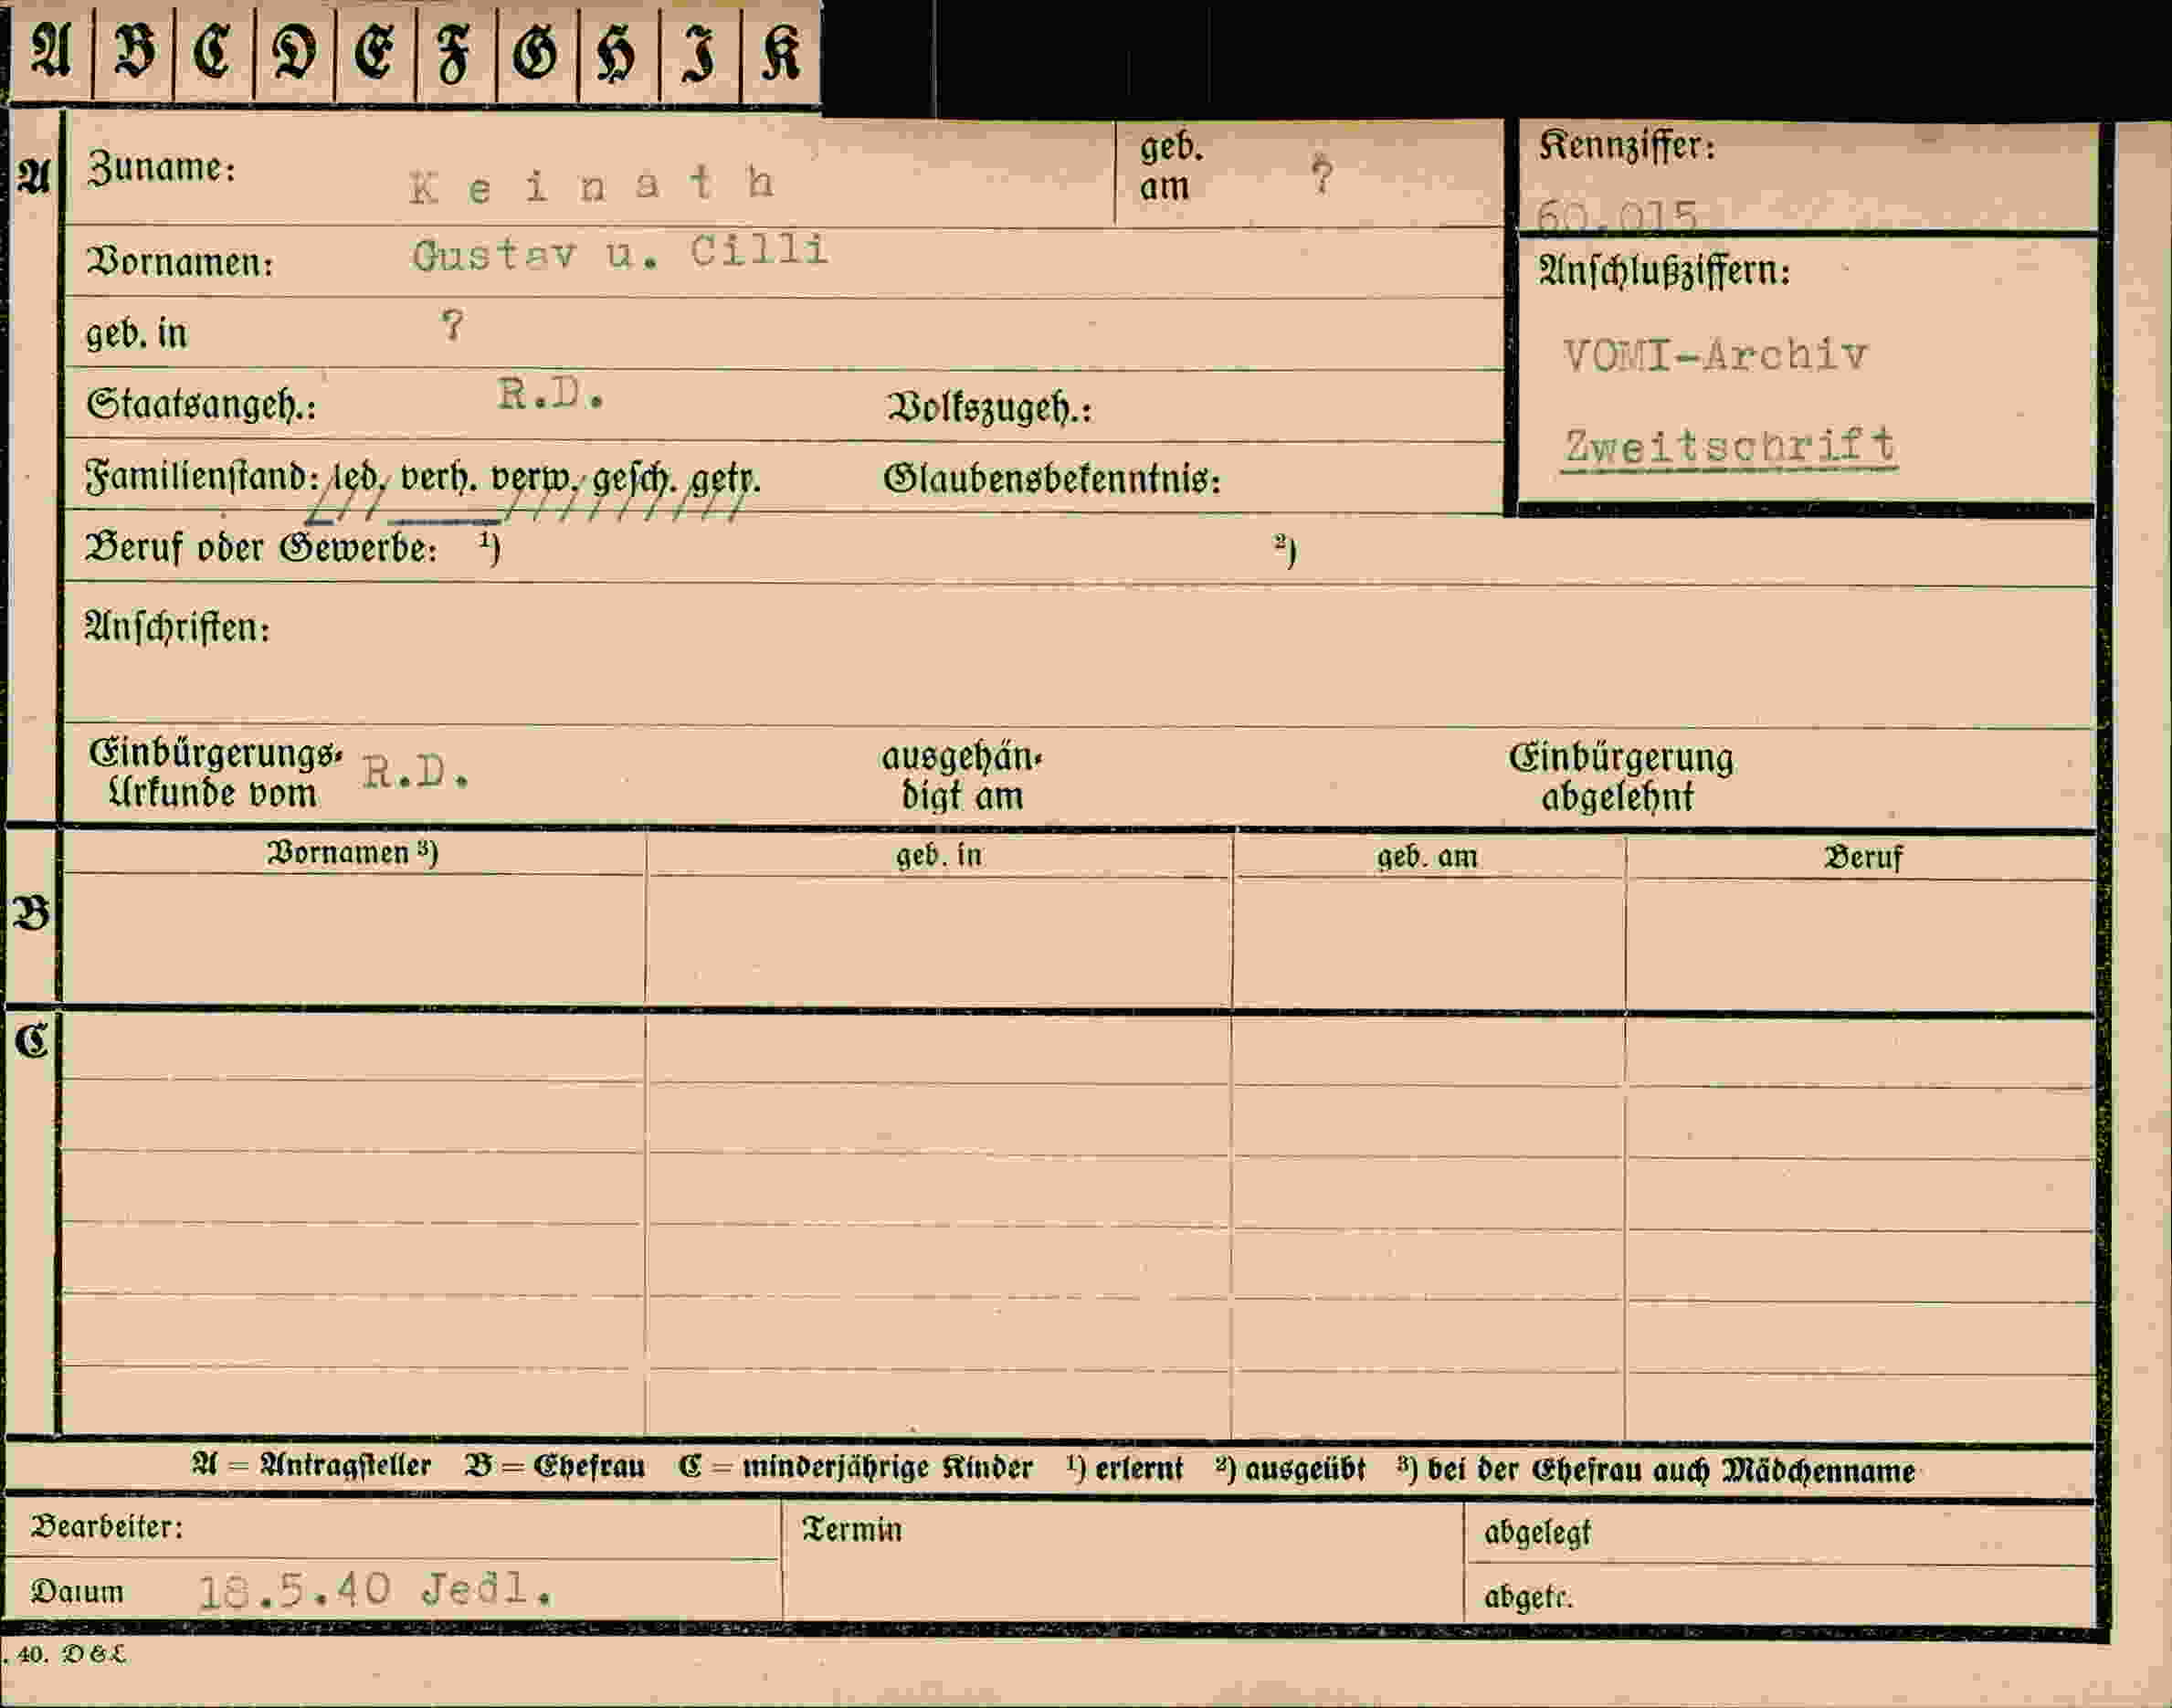 A B C D E F G H I K
A Zuname: Keinath geb. am ? Kennziffer: 60.015
Vornamen: Gustav u. Cilli
Anschlußziffern:
geb. in ?
VOMI-Archiv
Staatsangeh.: R.D. Volkszugeh.:
Zweitschrift
Familienstand: led. verh. verw. gesch. getr. Glaubensbekenntnis:
Beruf oder Gewerbe: ¹) ²)
Anschriften:
Einbürgerungs- R.D. ausgehän- Einbürgerung
Urkunde vom digt am abgelehnt
Vornamen ³) geb. in geb. am Beruf
B
C
A = Antragsteller B = Ehefrau C = minderjährige Kinder ¹) erlernt ²) ausgeübt ³) bei der Ehefrau auch Mädchenname
Bearbeiter: Termin abgelegt
Datum 18.5.40 Jedl. abgetr.
. 40. D & L